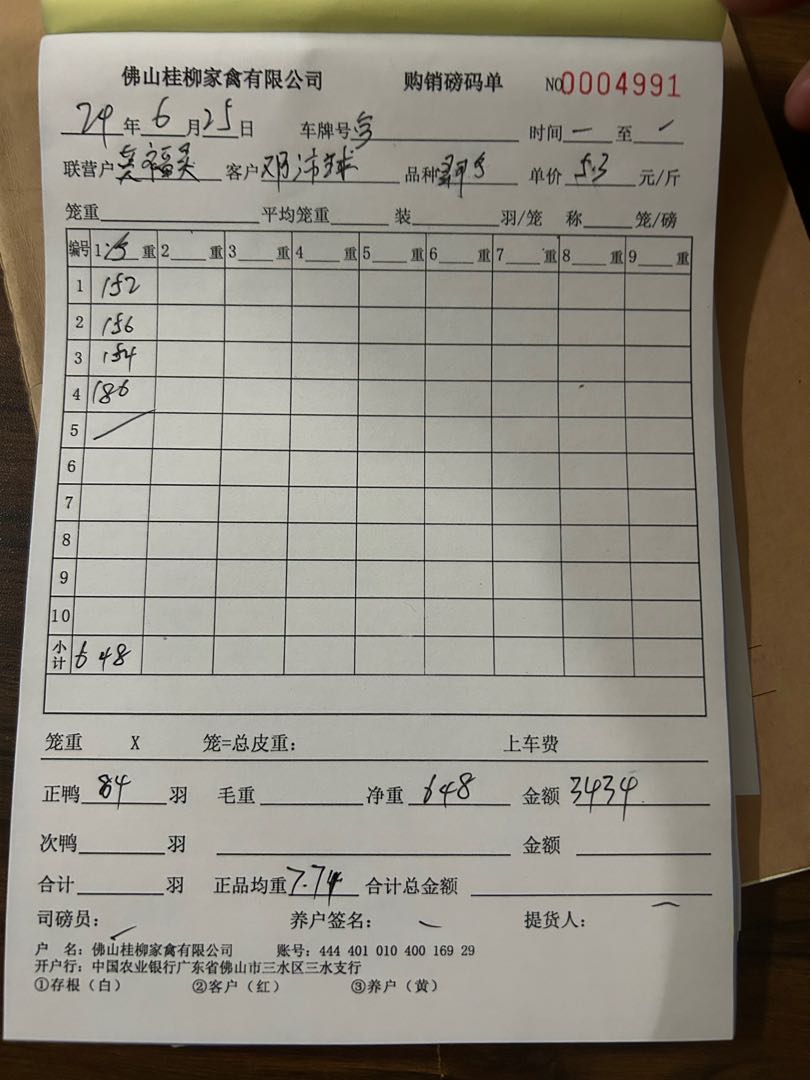 佛山桂柳家禽有限公司 购销磅码单 NO0004991
24年6月25日 车牌号 时间 至
联营户 吴福英 客户 邓沛球 品种 单价 5.3 元/斤
笼重 平均笼重 装 羽/笼 称 笼/磅
编号 1 重 2 重 3 重 4 重 5 重 6 重 7 重 8 重 9 重
1 152
2 156
3 154
4 186
5
6
7
8
9
10
小计 648
笼重 X 笼=总皮重: 上车费
正鸭 84 羽 毛重 净重 648 金额 3434
次鸭 羽 金额
合计 羽 正品均重 7.74 合计总金额
司磅员: 养户签名: 提货人:
户 名: 佛山桂柳家禽有限公司 账号: 444 401 010 400 169 29
开户行: 中国农业银行广东省佛山市三水区三水支行
①存根(白) ②客户(红) ③养户(黄)